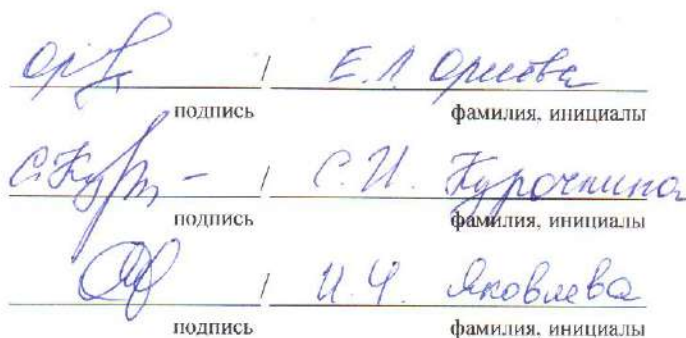 / Е.Л. Орлова
подпись фамилия, инициалы
/ С.И. Курочкина
подпись фамилия, инициалы
/ И.Ч. Яковлева
подпись фамилия, инициалы